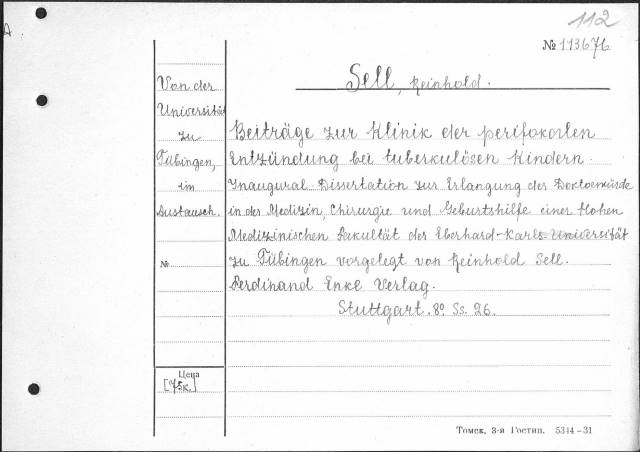 112
A
№ 113676
Sell, Reinhold.
Von der
Universität
zu
Tübingen,
im
Austausch.
№
Beiträge zur Klinik der perifokalen
Entzündung bei tuberkulösen Kindern.
Inaugural-Dissertation zur Erlangung der Doktorwürde
in der Medizin, Chirurgie und Geburtshilfe einer Hohen
Medizinischen Fakultät der Eberhard-Karls Universität
zu Tübingen vorgelegt von Reinhold Sell.
Ferdinand Enke Verlag.
Stuttgart. 8° Ss. 26.
Цена
[75к]
Томск, 3-я Гостип. 5314-31